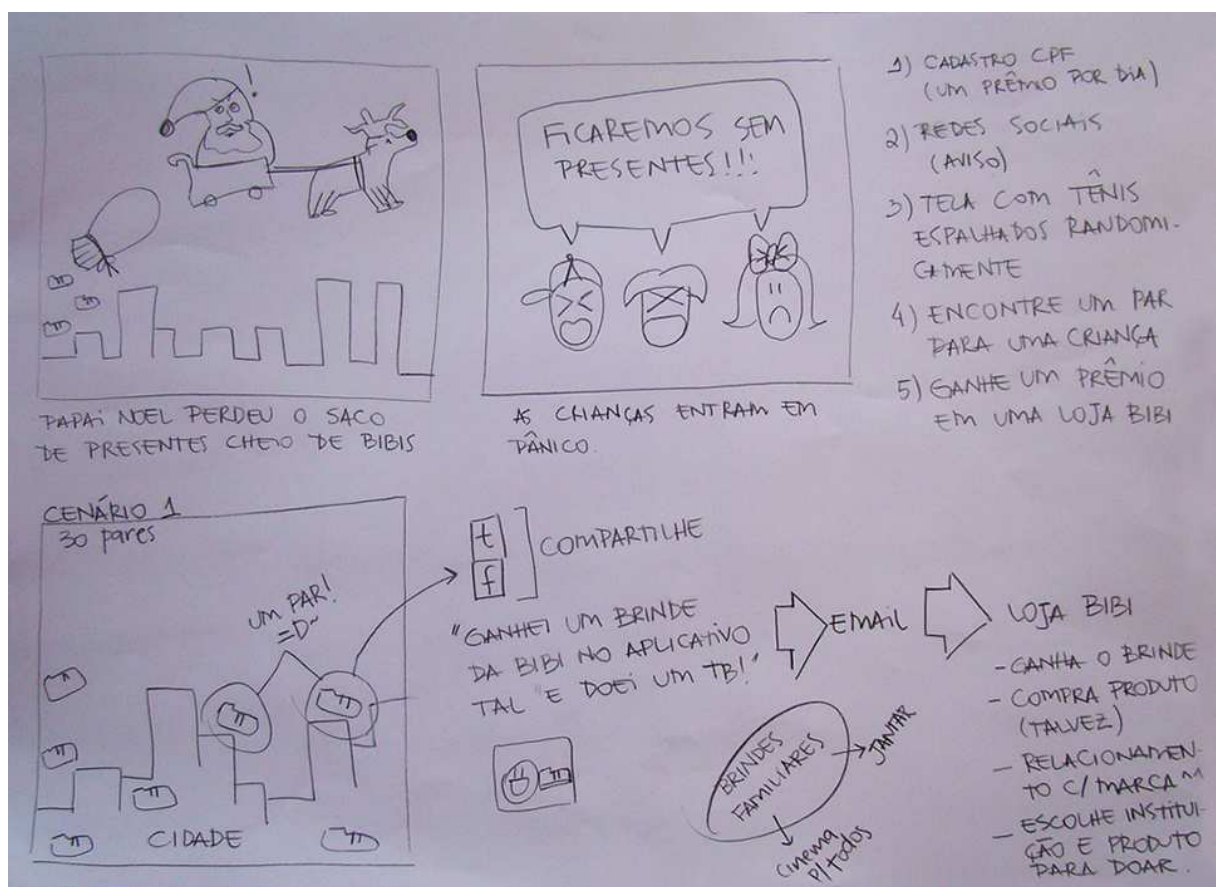 !
PAPAI NOEL PERDEU O SACO
DE PRESENTES CHEIO DE BIBIS
FICAREMOS SEM
PRESENTES!!!
AS CRIANÇAS ENTRAM EM
PÂNICO.
1) CADASTRO CPF
(UM PRÊMIO POR DIA)
2) REDES SOCIAIS
(AVISO)
3) TELA COM TÊNIS
ESPALHADOS RANDOMI-
CAMENTE
4) ENCONTRE UM PAR
PARA UMA CRIANÇA
5) GANHE UM PRÊMIO
EM UMA LOJA BIBI
CENÁRIO 1
30 pares
UM PAR!
=D~
CIDADE
t
f
COMPARTILHE
"GANHEI UM BRINDE
DA BIBI NO APLICATIVO
TAL "E DOEI UM TB!"
EMAIL
BRINDES
FAMILIARES
JANTAR
Cinema
P/todos
LOJA BIBI
- GANHA O BRINDE
- COMPRA PRODUTO
(TALVEZ)
- RELACIONAMEN-
TO C/ MARCA ^^
- ESCOLHE INSTITUI-
ÇÃO E PRODUTO
PARA DOAR.